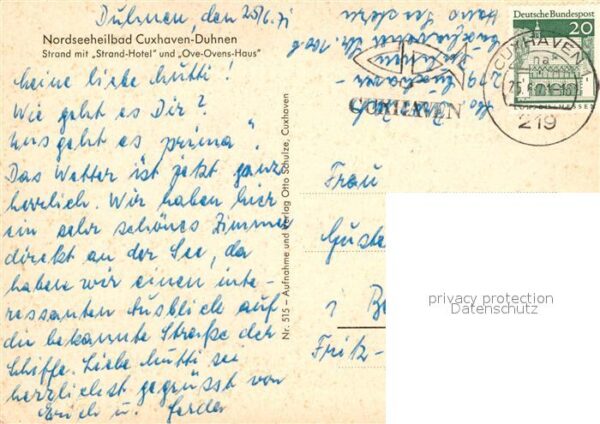 Duhnen, den 25/6. 71
Nordseeheilbad Cuxhaven-Duhnen
Strand mit „Strand-Hotel" und „Ove-Ovens-Haus"
Meine liebe Mutti!
Wie geht es Dir?
Uns geht es prima!
Das Wetter ist jetzt ganz
herrlich. Wir haben hier
ein sehr schönes Zimmer
direkt an der See, da
haben wir einen inte-
ressanten Ausblick auf
die bekannte Straße der
Schiffe. Liebe Mutti sei
herzlichst gegrüsst von
Erich u. Gerda
Nr. 515 - Aufnahme und Verlag Otto Schulze, Cuxhaven
219
Duhnen
CUXHAVEN
Deutsche Bundespost
20
CUXHAVEN 1
219
Frau
i
Fritz-
privacy protection
Datenschutz